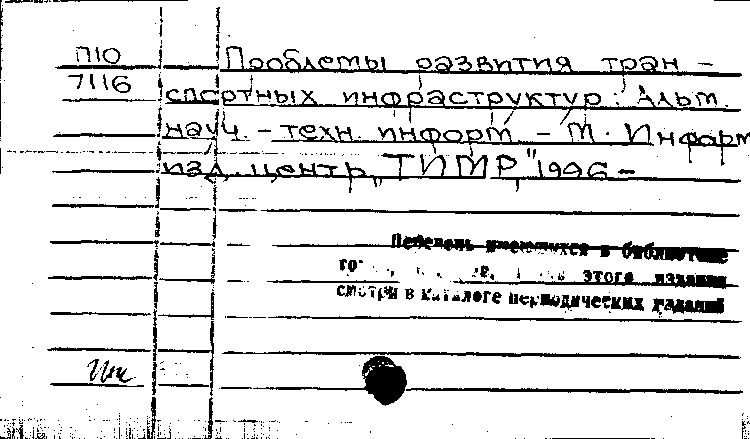 П10
7116
Проблемы развития тран-
спортных инфраструктур: Альт.
науч.-техн. информ. - М. Информ
изд. центр "ТИМР", 1996 -
Перечень имеющихся в библиотеке
этого издания
смотри в каталоге периодических изданий